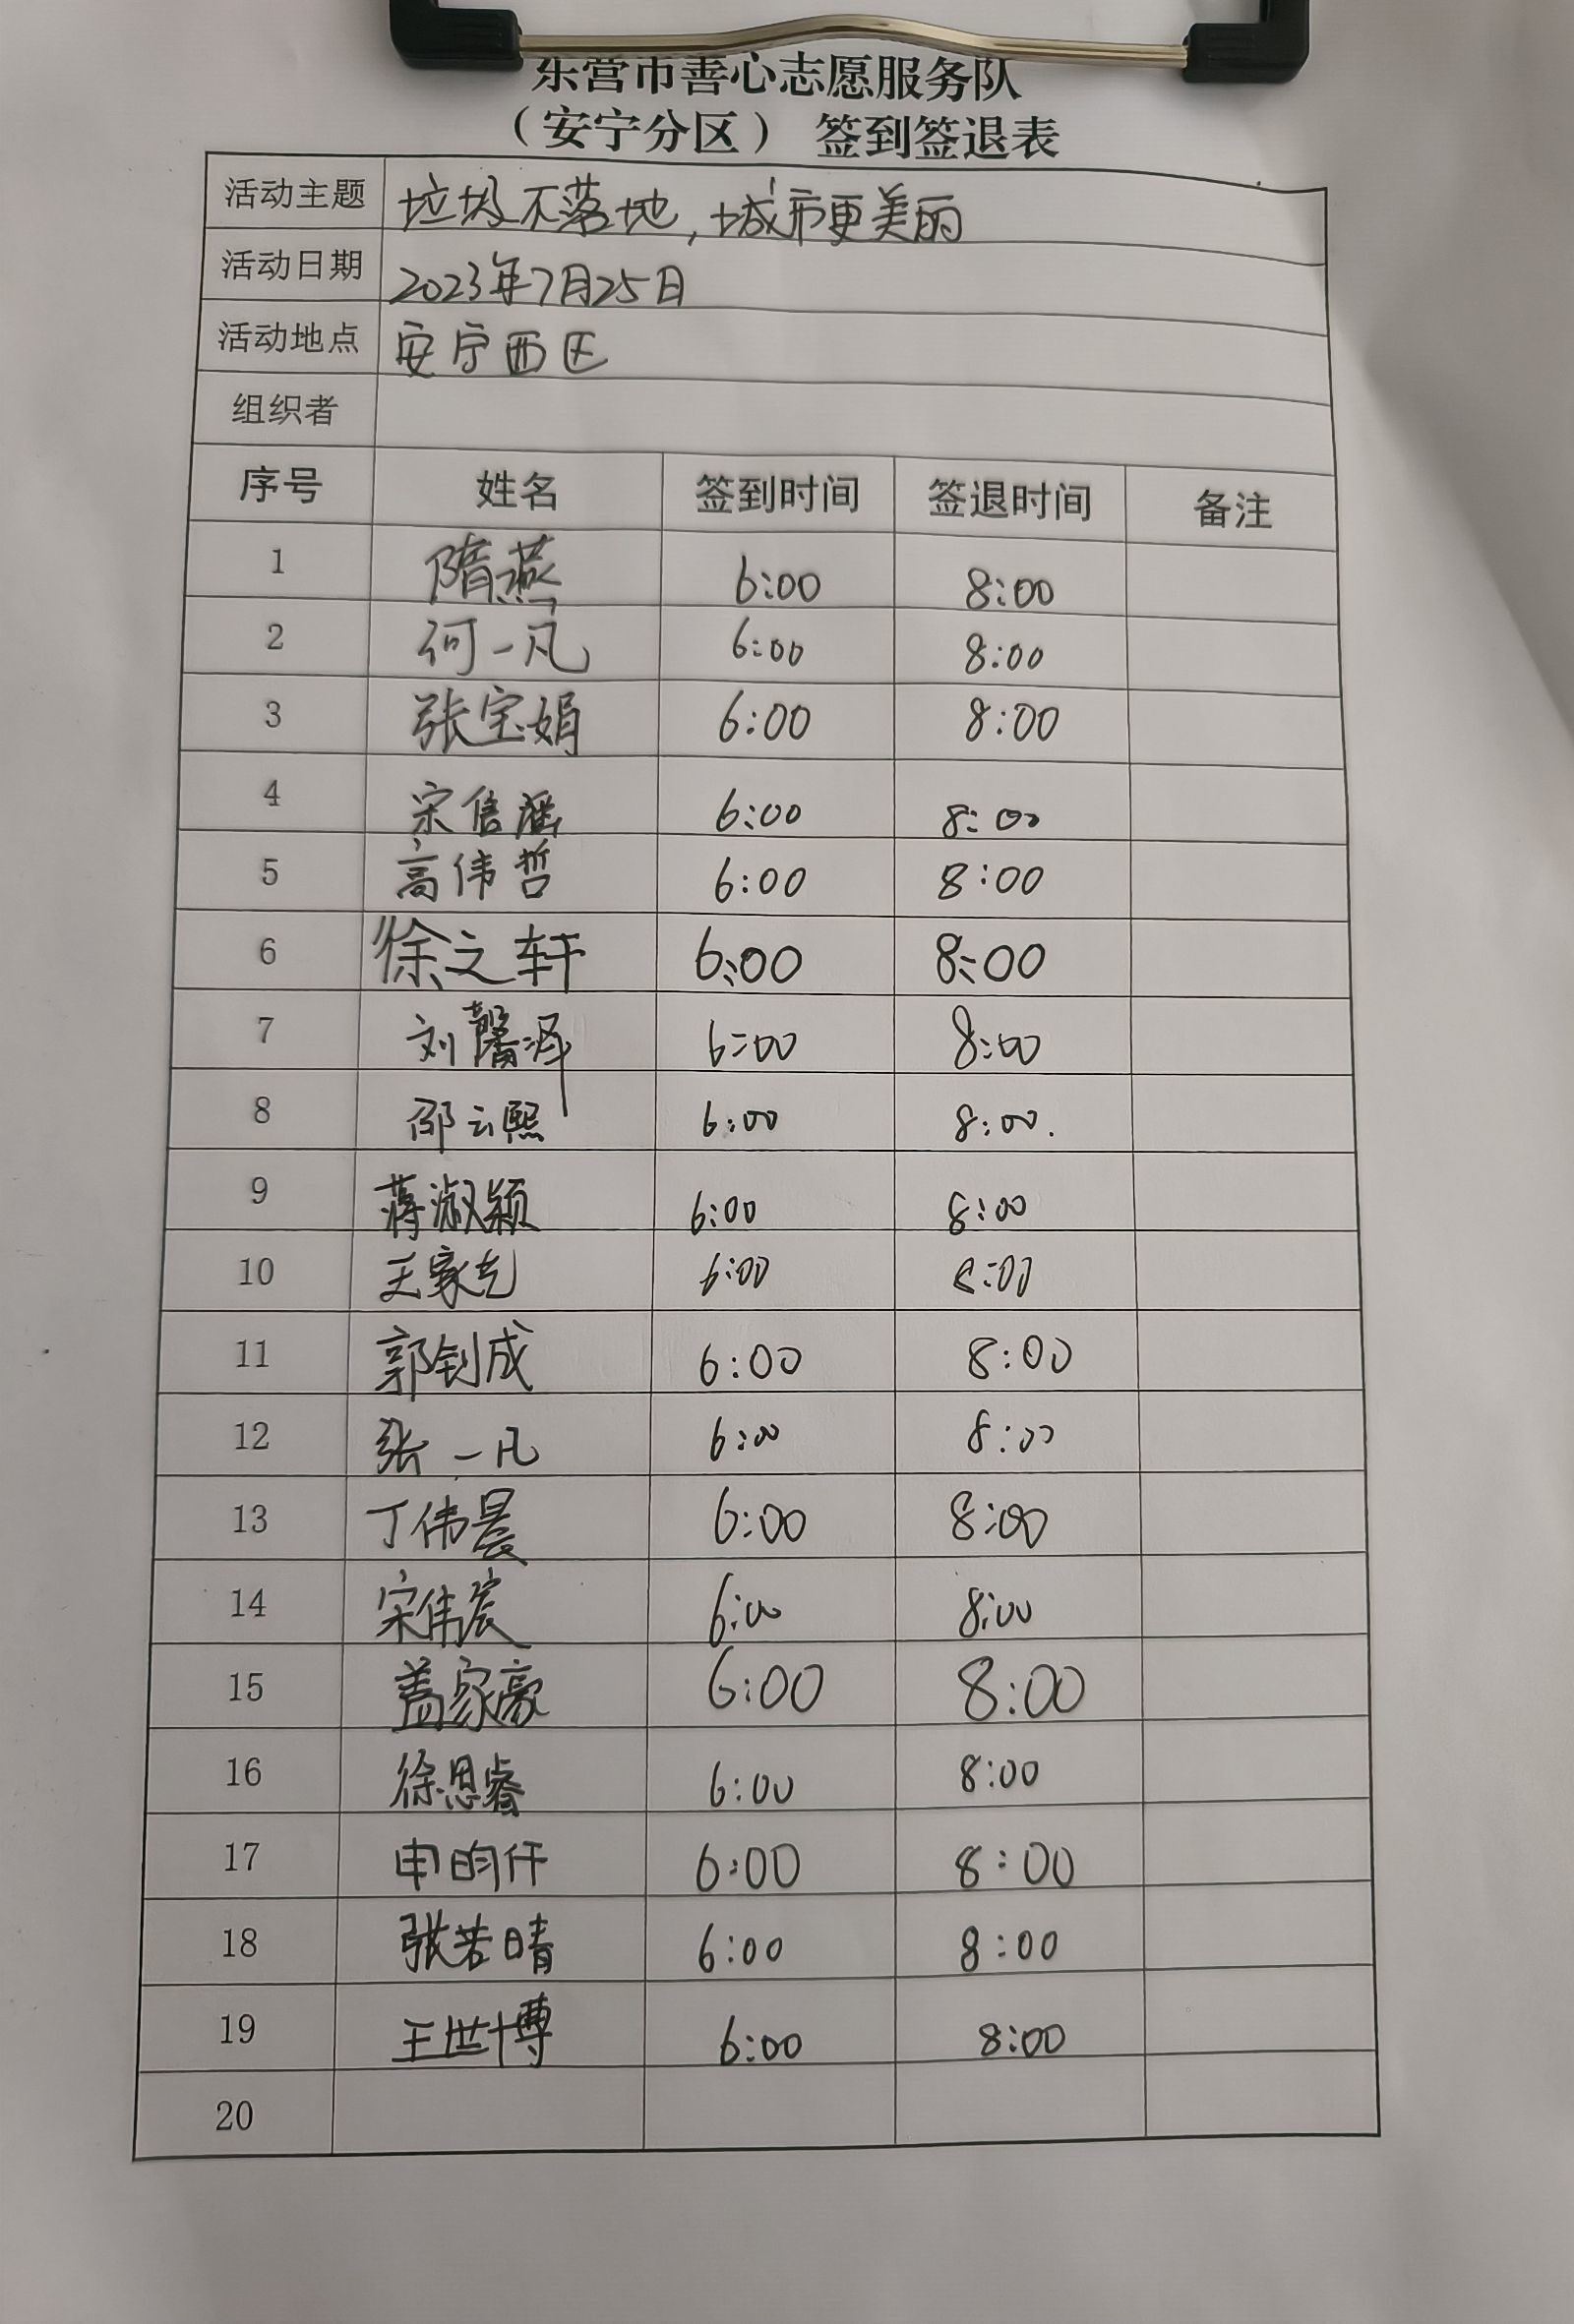 东营市善心志愿服务队
（安宁分区） 签到签退表
活动主题 垃圾不落地，城市更美丽
活动日期 2023年7月25日
活动地点 安宁西区
组织者
序号 姓名 签到时间 签退时间 备注
1 隋燕 6:00 8:00
2 何一凡 6:00 8:00
3 张宝娟 6:00 8:00
4 宋信滛 6:00 8:00
5 高伟哲 6:00 8:00
6 徐之轩 6:00 8:00
7 刘馨泽 6:00 8:00
8 邵云熙 6:00 8:00.
9 蒋淑颖 6:00 8:00
10 王家 6:00 8:00
11 郭钊成 6:00 8:00
12 张一凡 6:00 8:00
13 丁伟晨 6:00 8:00
14 宋伟宸 6:00 8:00
15 盖家豪 6:00 8:00
16 徐思睿 6:00 8:00
17 申昀仟 6:00 8:00
18 张若晴 6:00 8:00
19 王世博 6:00 8:00
20